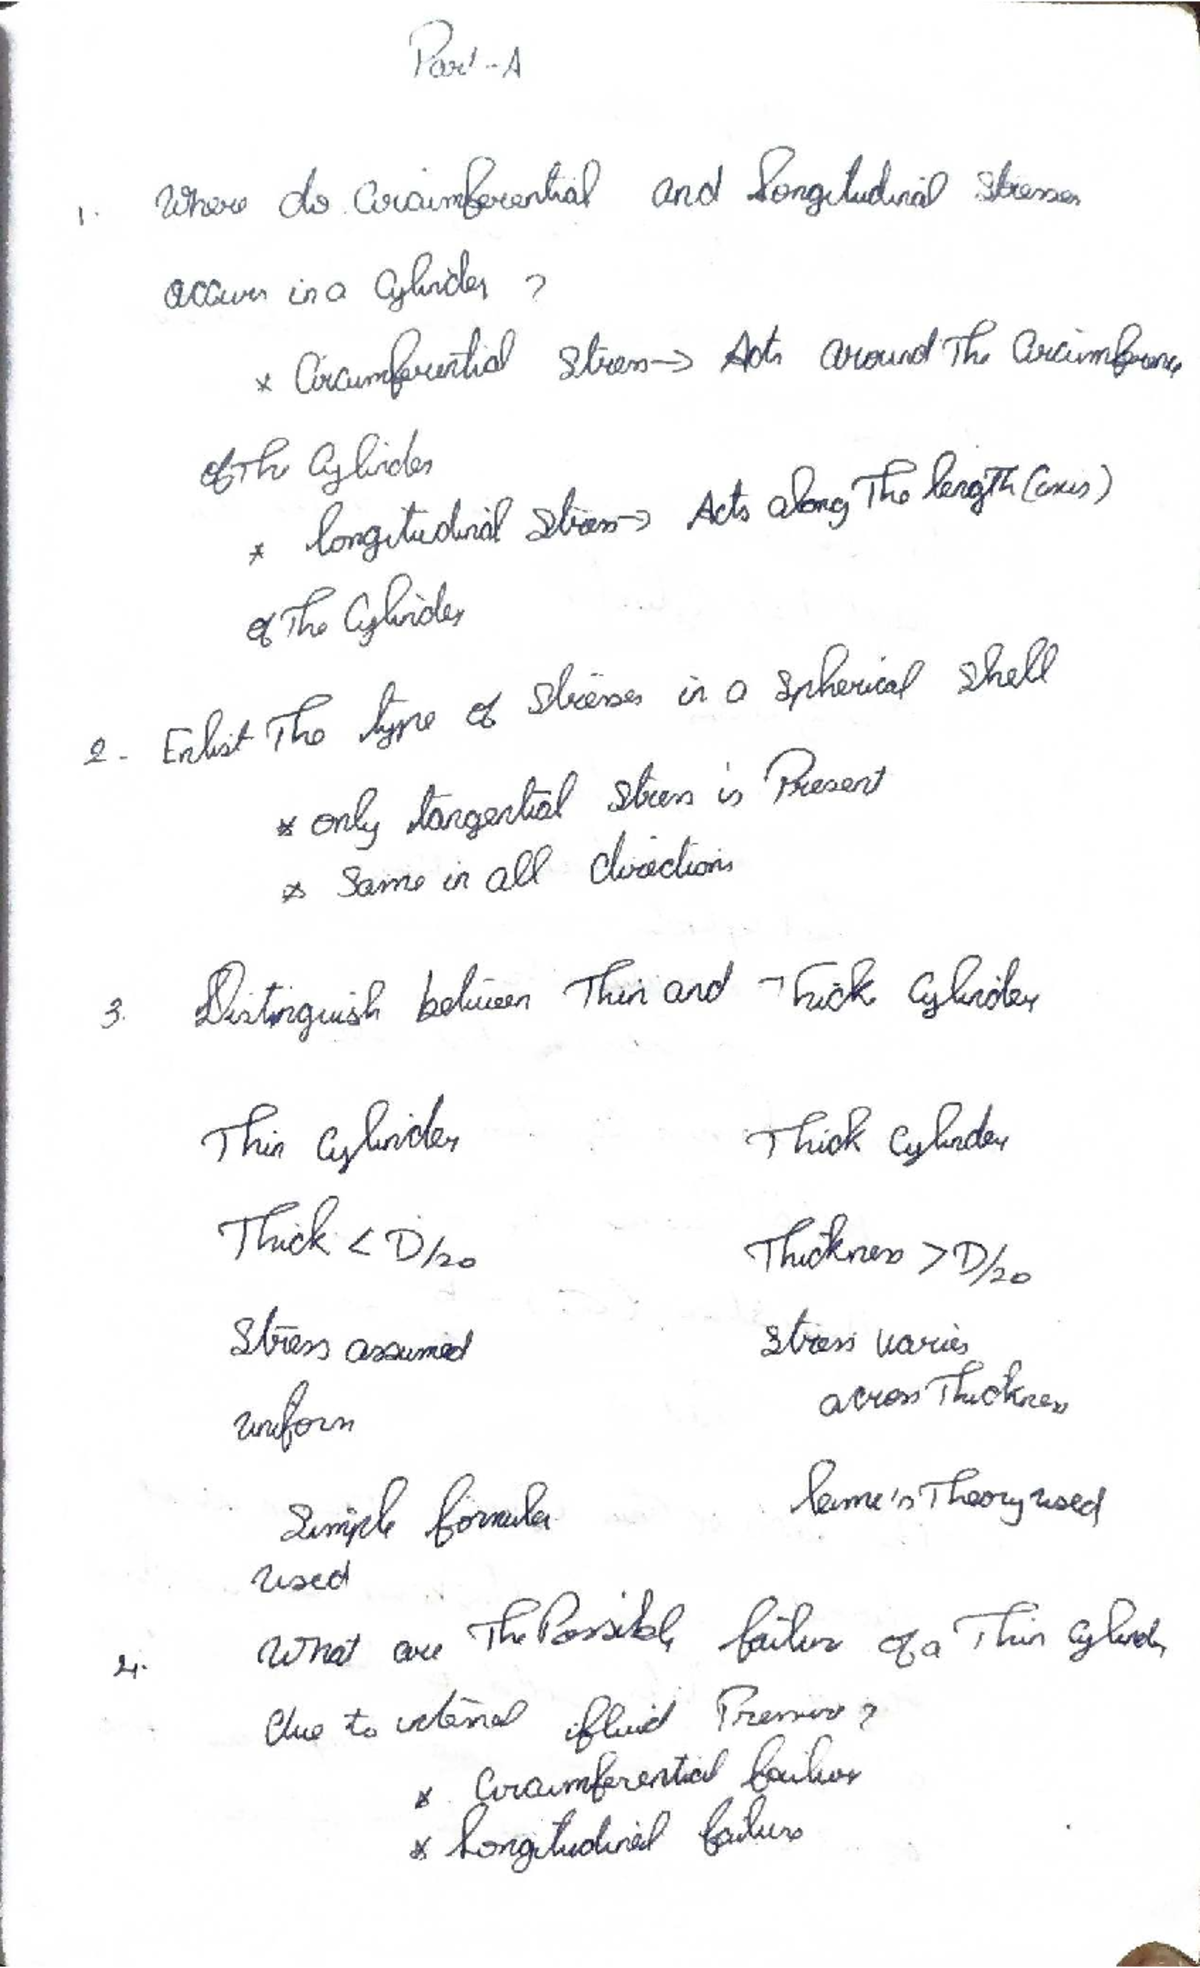 Part-A
1. Where do circumferential and longitudinal stresses
occurs in a cylinder ?
* Circumferential stress→ Acts around The circumference
of The cylinder
* longitudinal stress→ Acts along The length (axis)
of The cylinder
2- Enlist The type of stresses in a spherical shell
* only tangential stress is Present
* Same in all directions
3. Distinguish between Thin and Thick cylinder
Thin cylinder Thick cylinder
Thick < D/20 Thickness > D/20
Stress assumed stress varies
uniform across Thickness
Simple formula lame's Theory used
used
4. What are The Possible failure of a Thin cylinder
due to internal fluid Pressure ?
* circumferential failure
* longitudinal failure